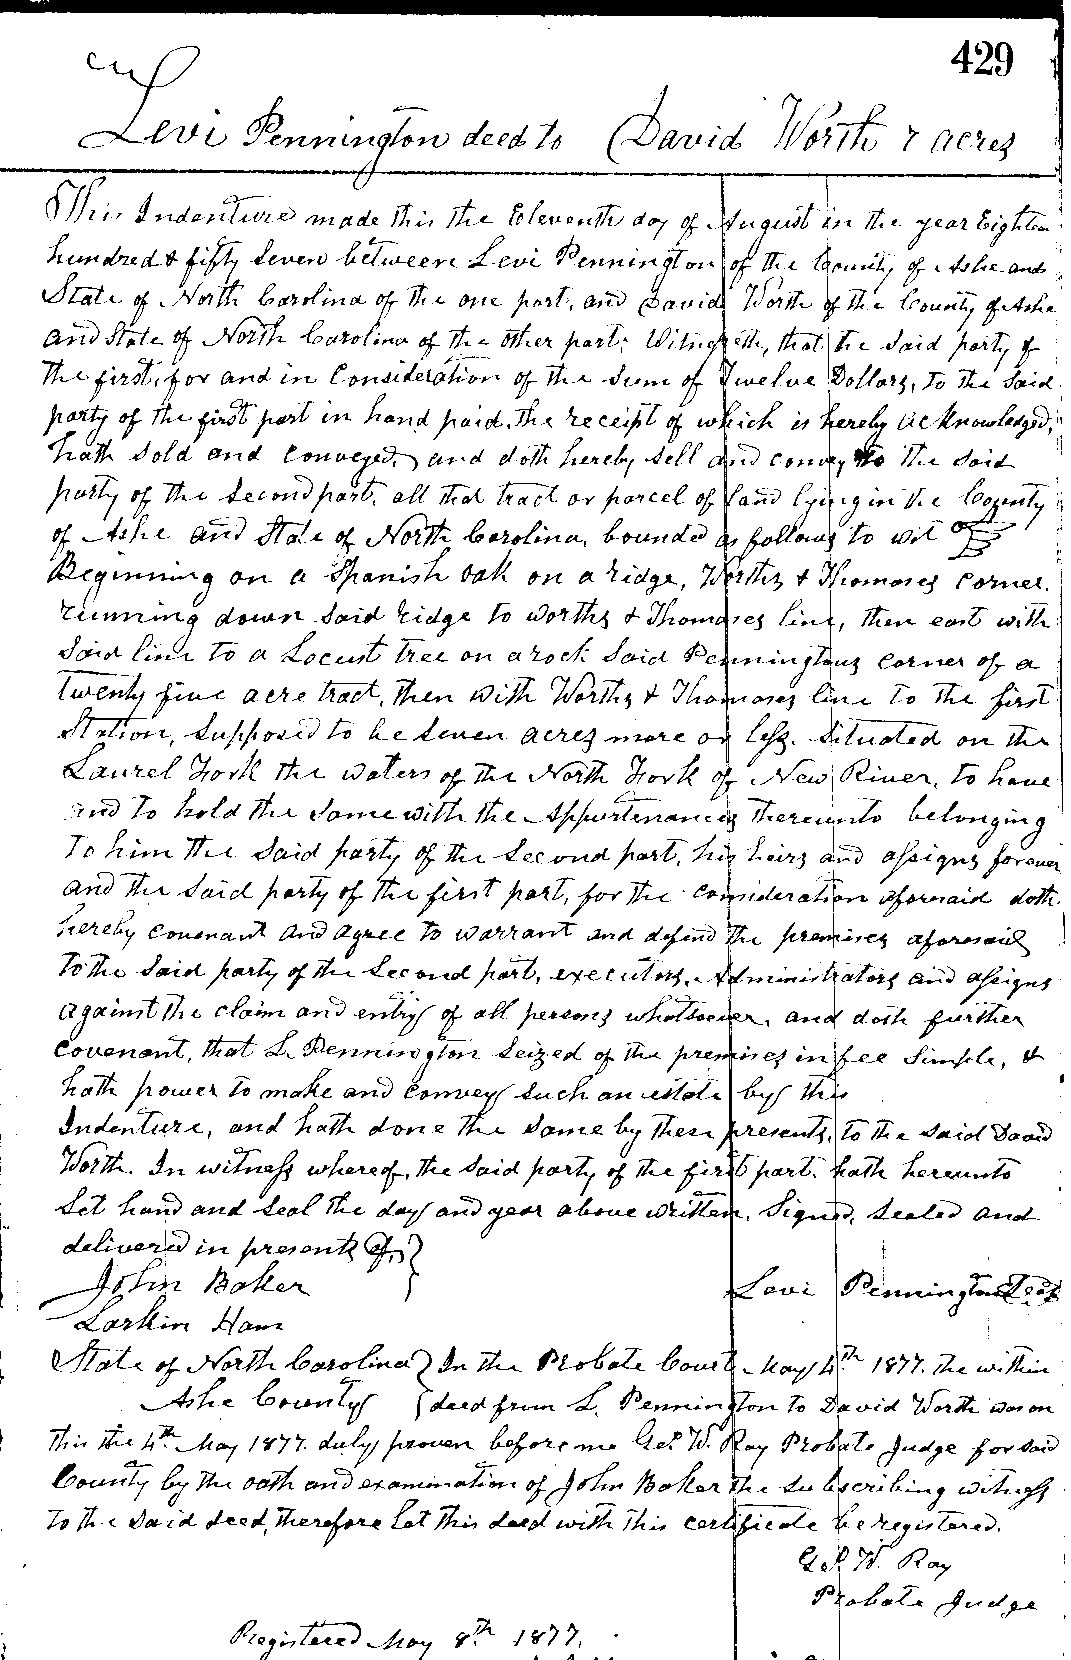 429
Levi Pennington deed to David Worth 7 acres
This Indenture made this the Eleventh day of August in the year Eighteen
hundred & fifty Seven between Levi Pennington of the County of Ashe and
State of North Carolina of the one part, and David Worth of the County of Ashe
and State of North Carolina of the other part; Witnesseth, that the Said party of
the first, for and in Consideration of the Sum of Twelve Dollars, to the Said
party of the first part in hand paid, the receipt of which is hereby acknowledged,
hath Sold and Conveyed, and doth hereby Sell and convey to the Said
party of the Second part, all that tract or parcel of land lying in the County
of Ashe and State of North Carolina, bounded as follows to wit
Beginning on a Spanish Oak on a ridge, Worths & Thomases Corner.
running down Said ridge to Worths & Thomases line, then east with
Said line to a Locust tree on a rock Said Penningtons corner of a
twenty five acre tract, then with Worths & Thomases line to the first
Station, Supposed to be Seven acres more or less. Situated on the
Laurel Fork the waters of the North Fork of New River, to have
and to hold the Same with the Appurtenances thereunto belonging
to him the Said party of the Second part, his heirs and assigns forever
and the Said party of the first part, for the consideration aforesaid doth
hereby covenant and agree to warrant and defend the premises aforesaid
to the Said party of the Second part, executors, Administrators and assigns
against the claim and entry of all persons whatsoever, and doth further
covenant, that L. Pennington Seized of the premises in fee Simple, &
hath power to make and convey Such an estate by this
Indenture, and hath done the Same by these presents, to the Said David
Worth. In witness whereof, the Said party of the first part, hath hereunto
Set hand and Seal the day and year above written. Signed, Sealed and
delivered in presents of }
John Baker Levi Pennington Seal
Larkin Ham
State of North Carolina } In the Probate Court May 4th 1877. The within
Ashe County { deed from L. Pennington to David Worth was on
this the 4th May 1877. duly proven before me Geo. W. Ray Probate Judge for Said
County by the oath and examination of John Baker the subscribing witness
to the Said deed, therefore let this deed with this certificate be registered.
Geo. W. Ray
Probate Judge
Registered May 8th 1877.